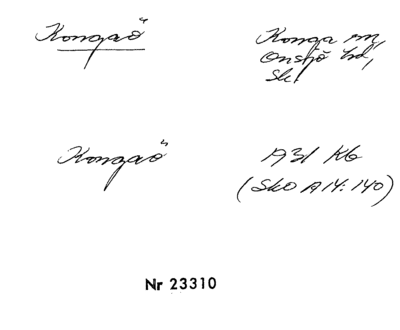 Kongaö
Konga sn,
Onsjö hd,
Sk.
Kongaö
1931 KG
(SkO A14:140)
Nr 23310